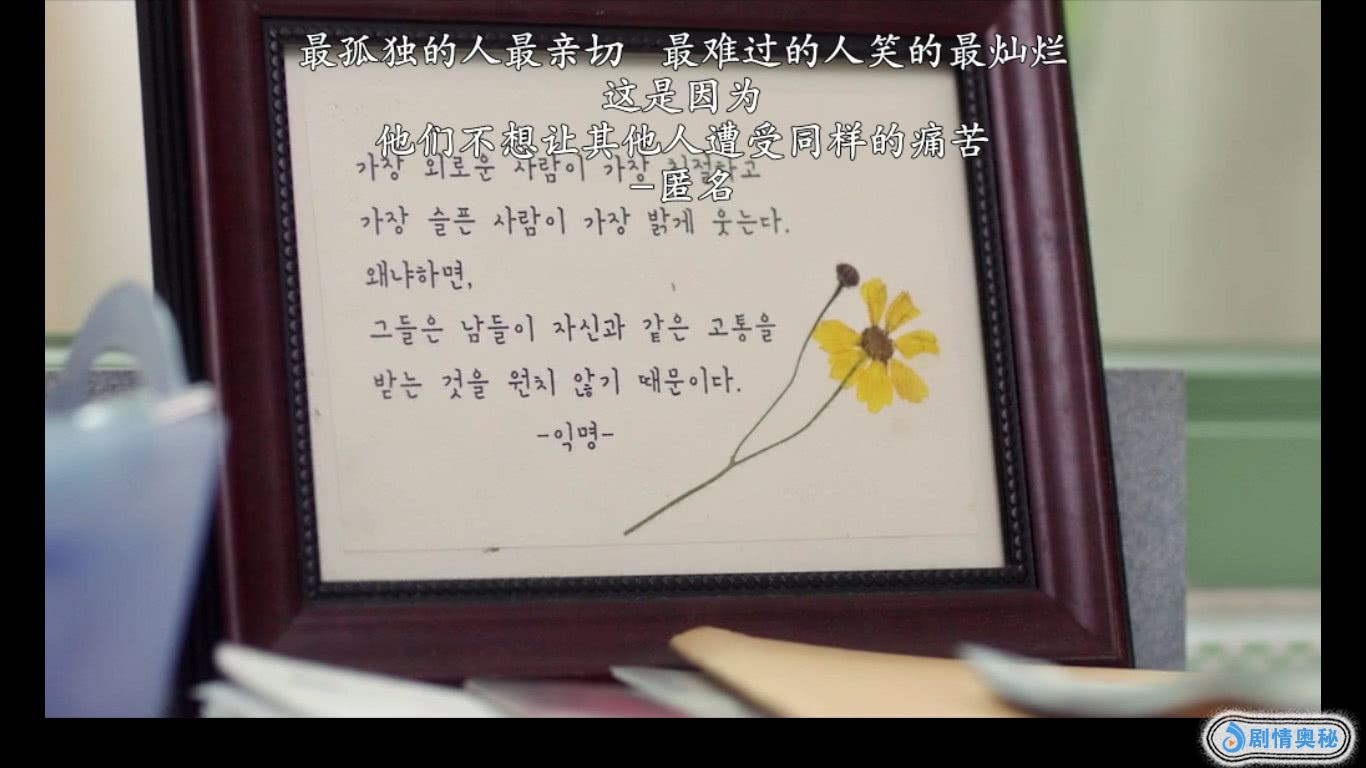 最孤独的人最亲切 最难过的人笑的最灿烂
这是因为
他们不想让其他人遭受同样的痛苦
-匿名
가장 외로운 사람이 가장 친절하고
가장 슬픈 사람이 가장 밝게 웃는다.
왜냐하면,
그들은 남들이 자신과 같은 고통을
받는 것을 원치 않기 때문이다.
-익명-
剧情奥秘